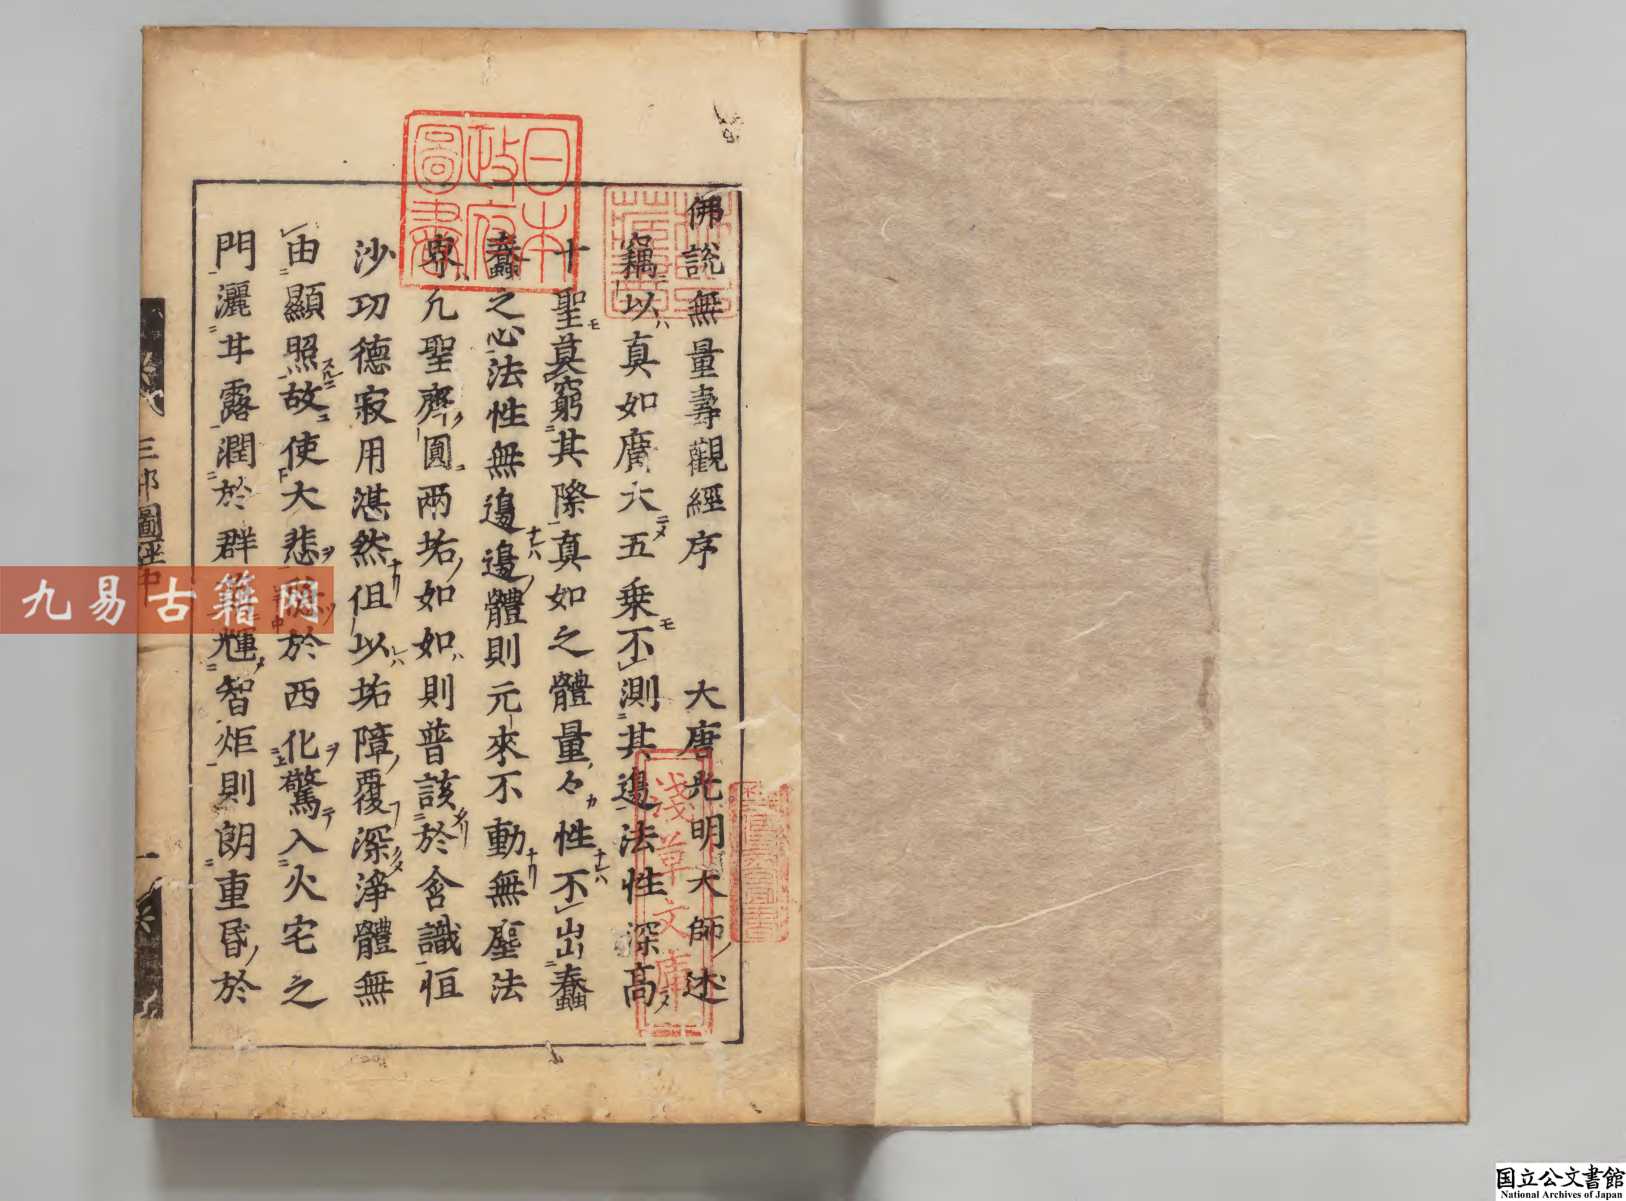 佛說無量壽觀經序　大唐光明大師述
竊以真如廣大五乗不測其邊法性深高
十聖莫窮其際真如之體量々性不出蠢
蠢之心法性無邊邊體則元來不動無塵法
界凢聖齊圓兩垢如如則普該於含識恒
沙功德寂用湛然但以垢障覆深淨體無
由顯照故使大悲於西化驚入火宅之
門灑甘露潤於群輝智炬則朗重昏於
日本政府圖書
淺草文庫
九易古籍网
国立公文書館
National Archives of Japan